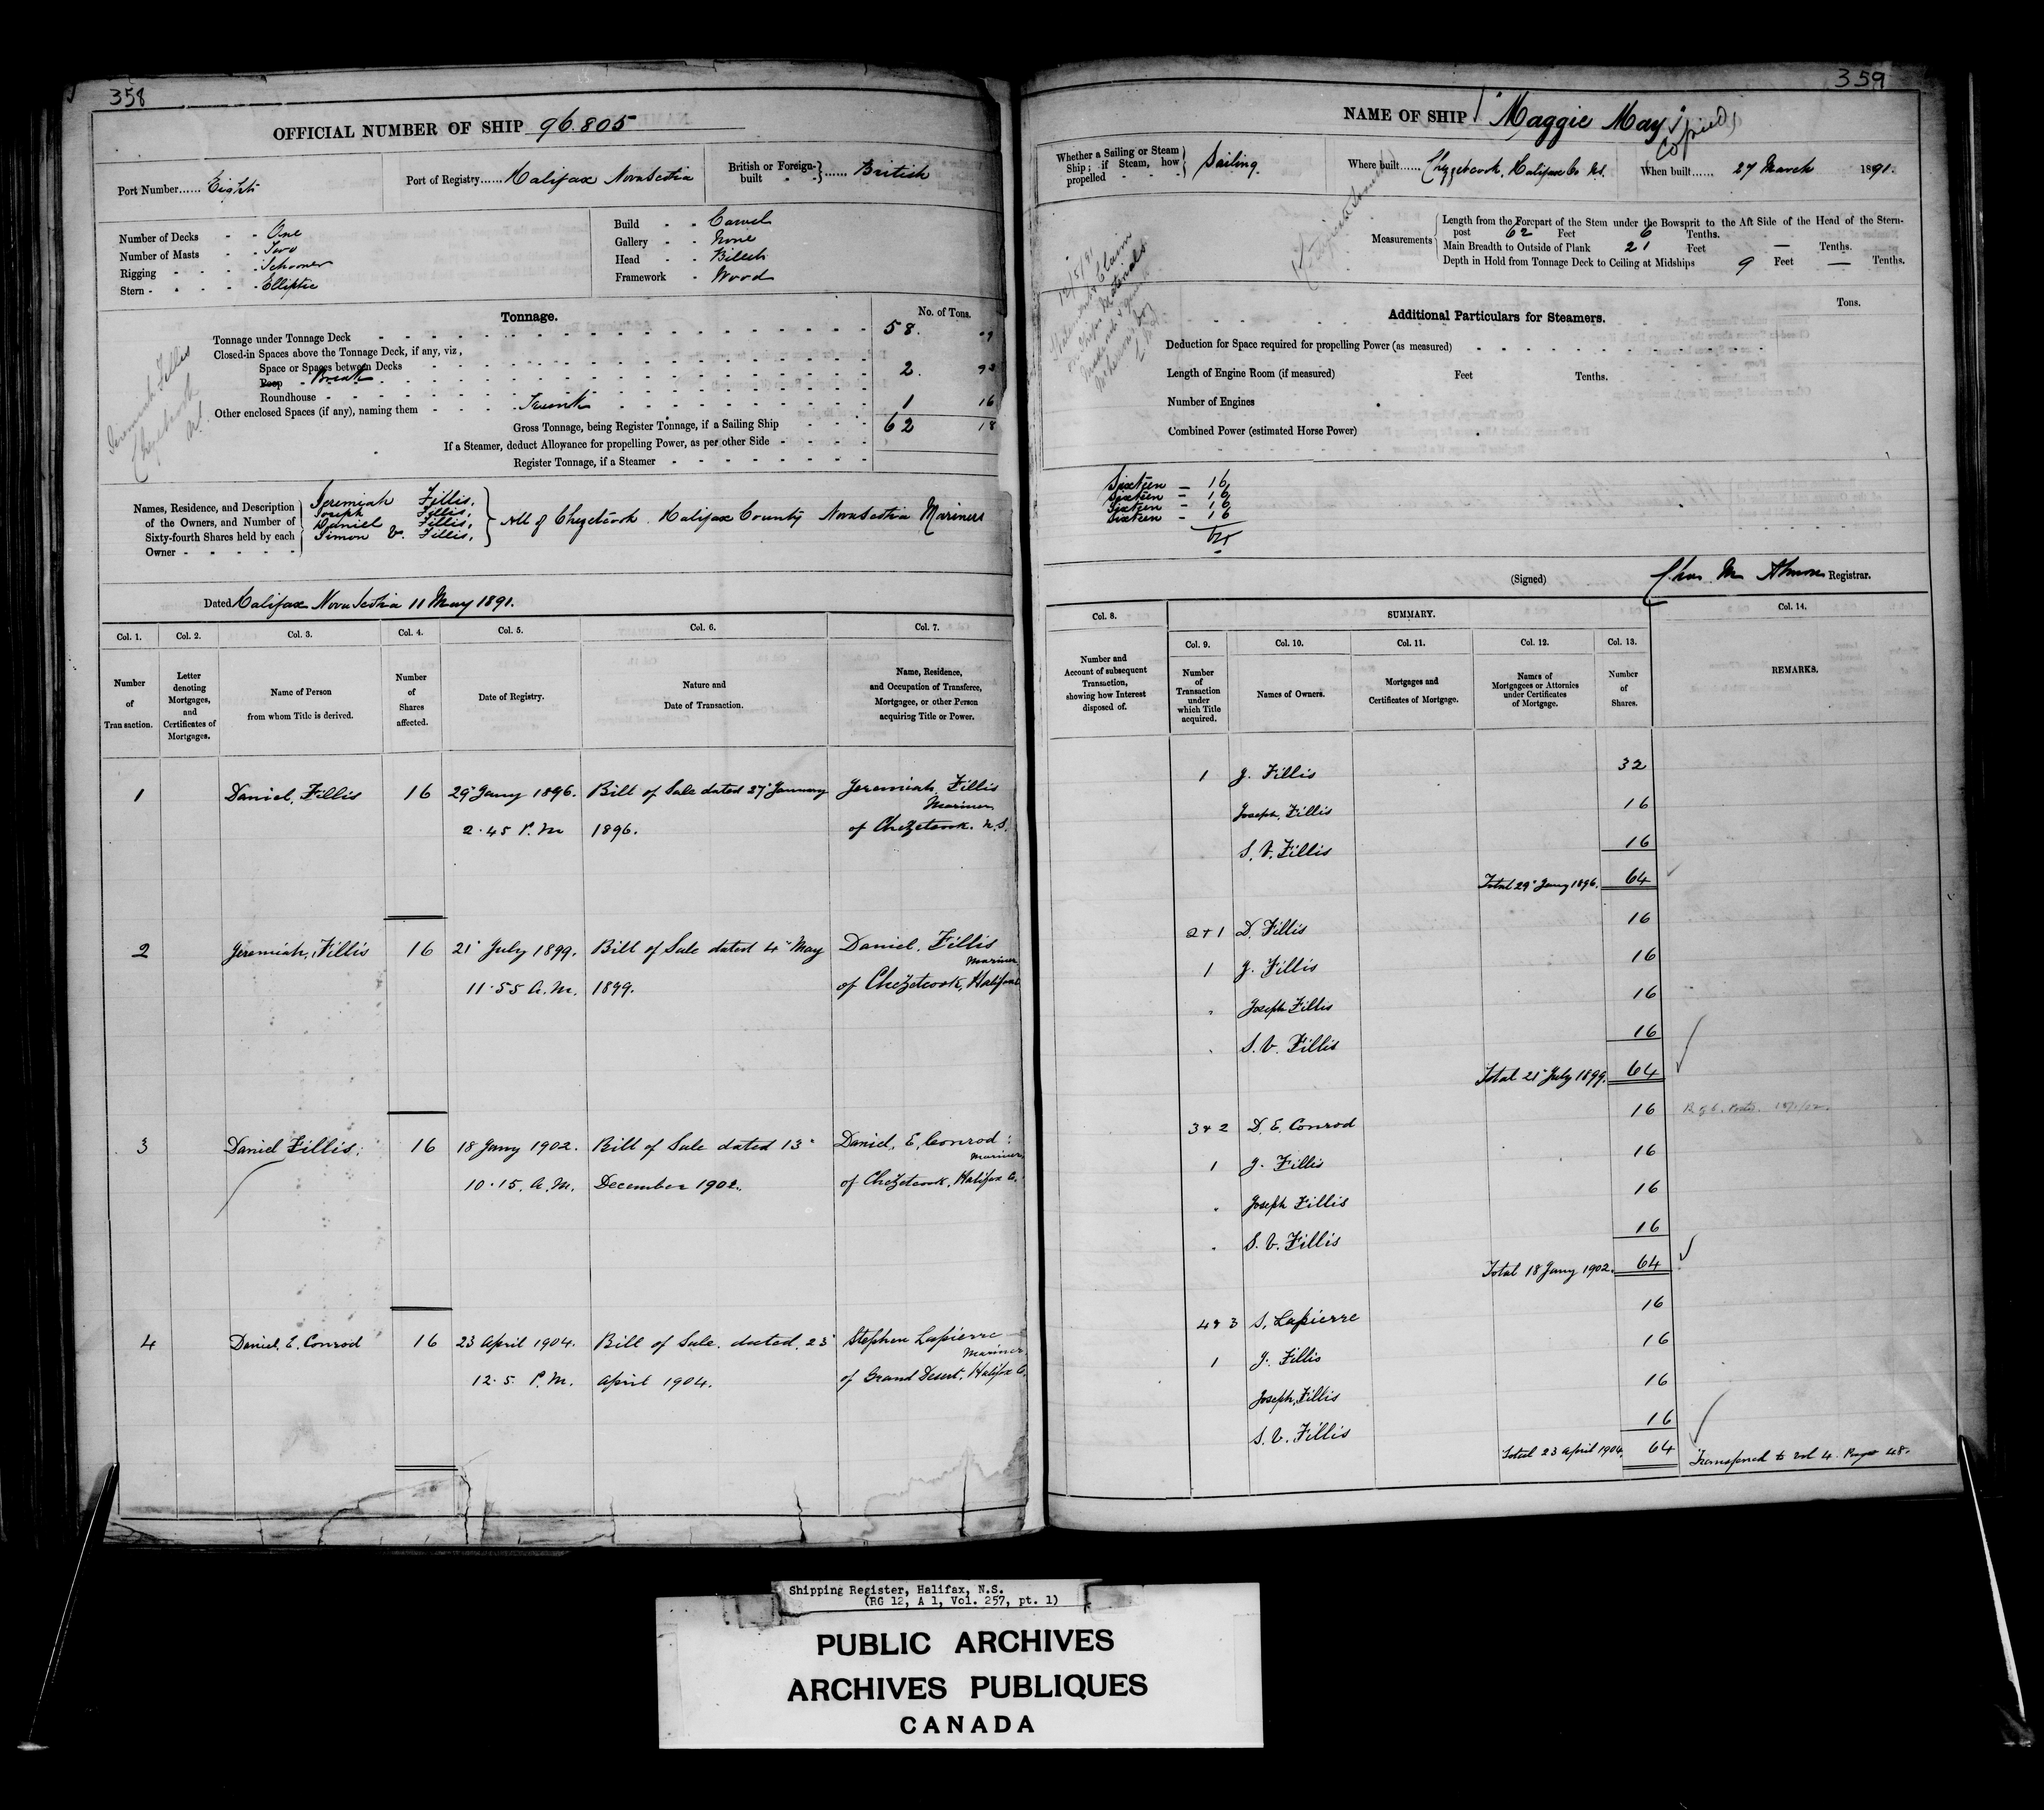 358
OFFICIAL NUMBER OF SHIP 96.805
Port Number...... Eight
Port of Registry...... Halifax Nova Scotia
British or Foreign-built - - } ...... British
Number of Decks - - One
Number of Masts - - Two
Rigging - - - - Schooner
Stern - - - - - Elliptic
Build - - Carvel
Gallery - - None
Head - - Billet
Framework - Wood
Tonnage.
No. of Tons.
Tonnage under Tonnage Deck 58. 09
Closed-in Spaces above the Tonnage Deck, if any, viz,
Space or Spaces between Decks
Poop - Break 2. 93
Roundhouse
Other enclosed Spaces (if any), naming them - - - - Trunk 1 16
Gross Tonnage, being Register Tonnage, if a Sailing Ship 62 18
If a Steamer, deduct Allowance for propelling Power, as per other Side
Register Tonnage, if a Steamer
Jeremiah Fillis
Chezetcook
Names, Residence, and Description of the Owners, and Number of Sixty-fourth Shares held by each Owner
Jeremiah Fillis,
Joseph Fillis,
Daniel Fillis,
Simon V. Fillis,
All of Chezetcook. Halifax County Nova Scotia Mariners
Dated Halifax Nova Scotia 11 May 1891.
Col. 1. Col. 2. Col. 3. Col. 4. Col. 5. Col. 6. Col. 7.
Number of Transaction.
Letter denoting Mortgages, and Certificates of Mortgages.
Name of Person from whom Title is derived.
Number of Shares affected.
Date of Registry.
Nature and Date of Transaction.
Name, Residence, and Occupation of Transferee, Mortgagee, or other Person acquiring Title or Power.
1 Daniel, Fillis 16 29 Jany 1896. Bill of Sale dated 27 January Jeremiah Fillis
Mariner
2.45 P.M 1896. of Chezetcook. N.S.
2 Jeremiah, Fillis 16 21 July 1899. Bill of Sale dated 4 May Daniel. Fillis
Mariner
11.55 A.M. 1899. of Chezetcook, Halifax
3 Daniel Fillis. 16 18 Jany 1902. Bill of Sale dated 13 Daniel. E. Conrod
Mariner
10.15. A.M. December 1902. of Chezetcook, Halifax Co.
4 Daniel. E. Conrod 16 23 April 1904. Bill of Sale. dated. 23 Stephen Lapierre
Mariner
12.5. P.M. April 1904. of Grand Desert. Halifax Co.
359
NAME OF SHIP "Maggie May"
Copied
Whether a Sailing or Steam Ship; if Steam, how propelled - - - Sailing
Where built...... Chezzetcook, Halifax Co N.S.
When built...... 27 March 1891.
Measurements
Length from the Forepart of the Stem under the Bowsprit to the Aft Side of the Head of the Stern-
post 62 Feet 6 Tenths.
Main Breadth to Outside of Plank 21 Feet — Tenths.
Depth in Hold from Tonnage Deck to Ceiling at Midships 9 Feet — Tenths.
12/5/91
Claim
Materials
Tons.
Additional Particulars for Steamers.
Deduction for Space required for propelling Power (as measured)
Length of Engine Room (if measured) Feet Tenths.
Number of Engines
Combined Power (estimated Horse Power)
Sixteen - 16
Sixteen - 16
Sixteen - 16
Sixteen - 16
64
(Signed) Chas M Almon Registrar.
Col. 8. SUMMARY. Col. 14.
Col. 9. Col. 10. Col. 11. Col. 12. Col. 13.
Number and Account of subsequent Transaction, showing how Interest disposed of.
Number of Transaction under which Title acquired.
Names of Owners.
Mortgages and Certificates of Mortgage.
Names of Mortgagees or Attornies under Certificates of Mortgage.
Number of Shares.
REMARKS.
1 J. Fillis 32
Joseph. Fillis 16
S. V. Fillis 16
Total 29 Jany 1896. 64
2+1 D. Fillis 16
1 J. Fillis 16
" Joseph Fillis 16
" S. V. Fillis 16
Total 21 July 1899. 64
3+2 D. E. Conrod 16
1 J. Fillis 16
" Joseph Fillis 16
" S. V. Fillis 16
Total 18 Jany 1902. 64
4+3 S. Lapierre 16
1 J. Fillis 16
Joseph. Fillis 16
S. V. Fillis 16
Total 23 April 1904. 64 Transferred to Vol 4. Page 48.
Shipping Register, Halifax, N.S.
(RG 12, A 1, Vol. 257, pt. 1)
PUBLIC ARCHIVES
ARCHIVES PUBLIQUES
CANADA